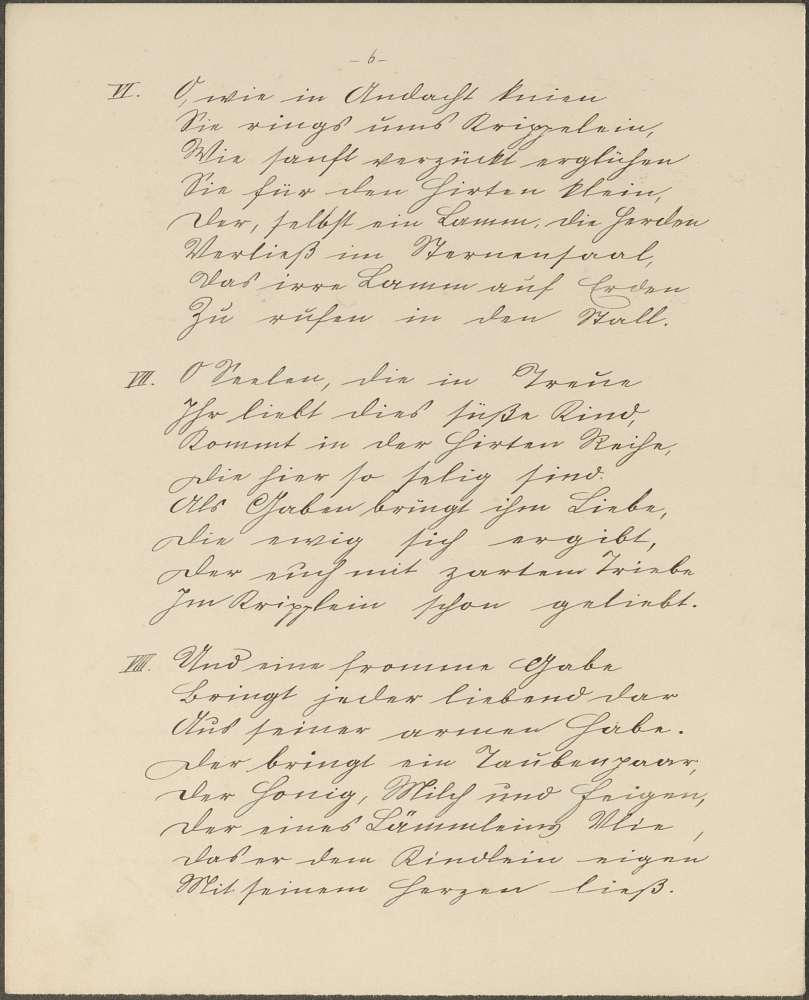 - 6 -
VI. O, wie in Andacht knien
Sie rings ums Krippelein,
Wie sanft verzückt erglühen
Sie für den Hirten klein,
Der, selbst ein Lamm, die Herden
Verließ im Sternensaal,
Das irre Lamm auf Erden
Zu rufen in den Stall.
VII. O Seelen, die in Treue
Ihr liebt dies süße Kind,
Kommt in der Hirten Reihe,
Die hier so selig sind.
Als Gaben bringt ihm Liebe,
Die ewig sich ergibt,
Der euch mit zartem Triebe
Im Kripplein schon geliebt.
VIII. Und eine fromme Gabe
Bringt jeder liebend dar
Aus seiner armen Habe.
Der bringt ein Taubenpaar,
Der Honig, Milch und Feigen,
Der eines Lämmleins Vlie ,
Das er dem Kindlein eigen
Mit seinem Herzen ließ.